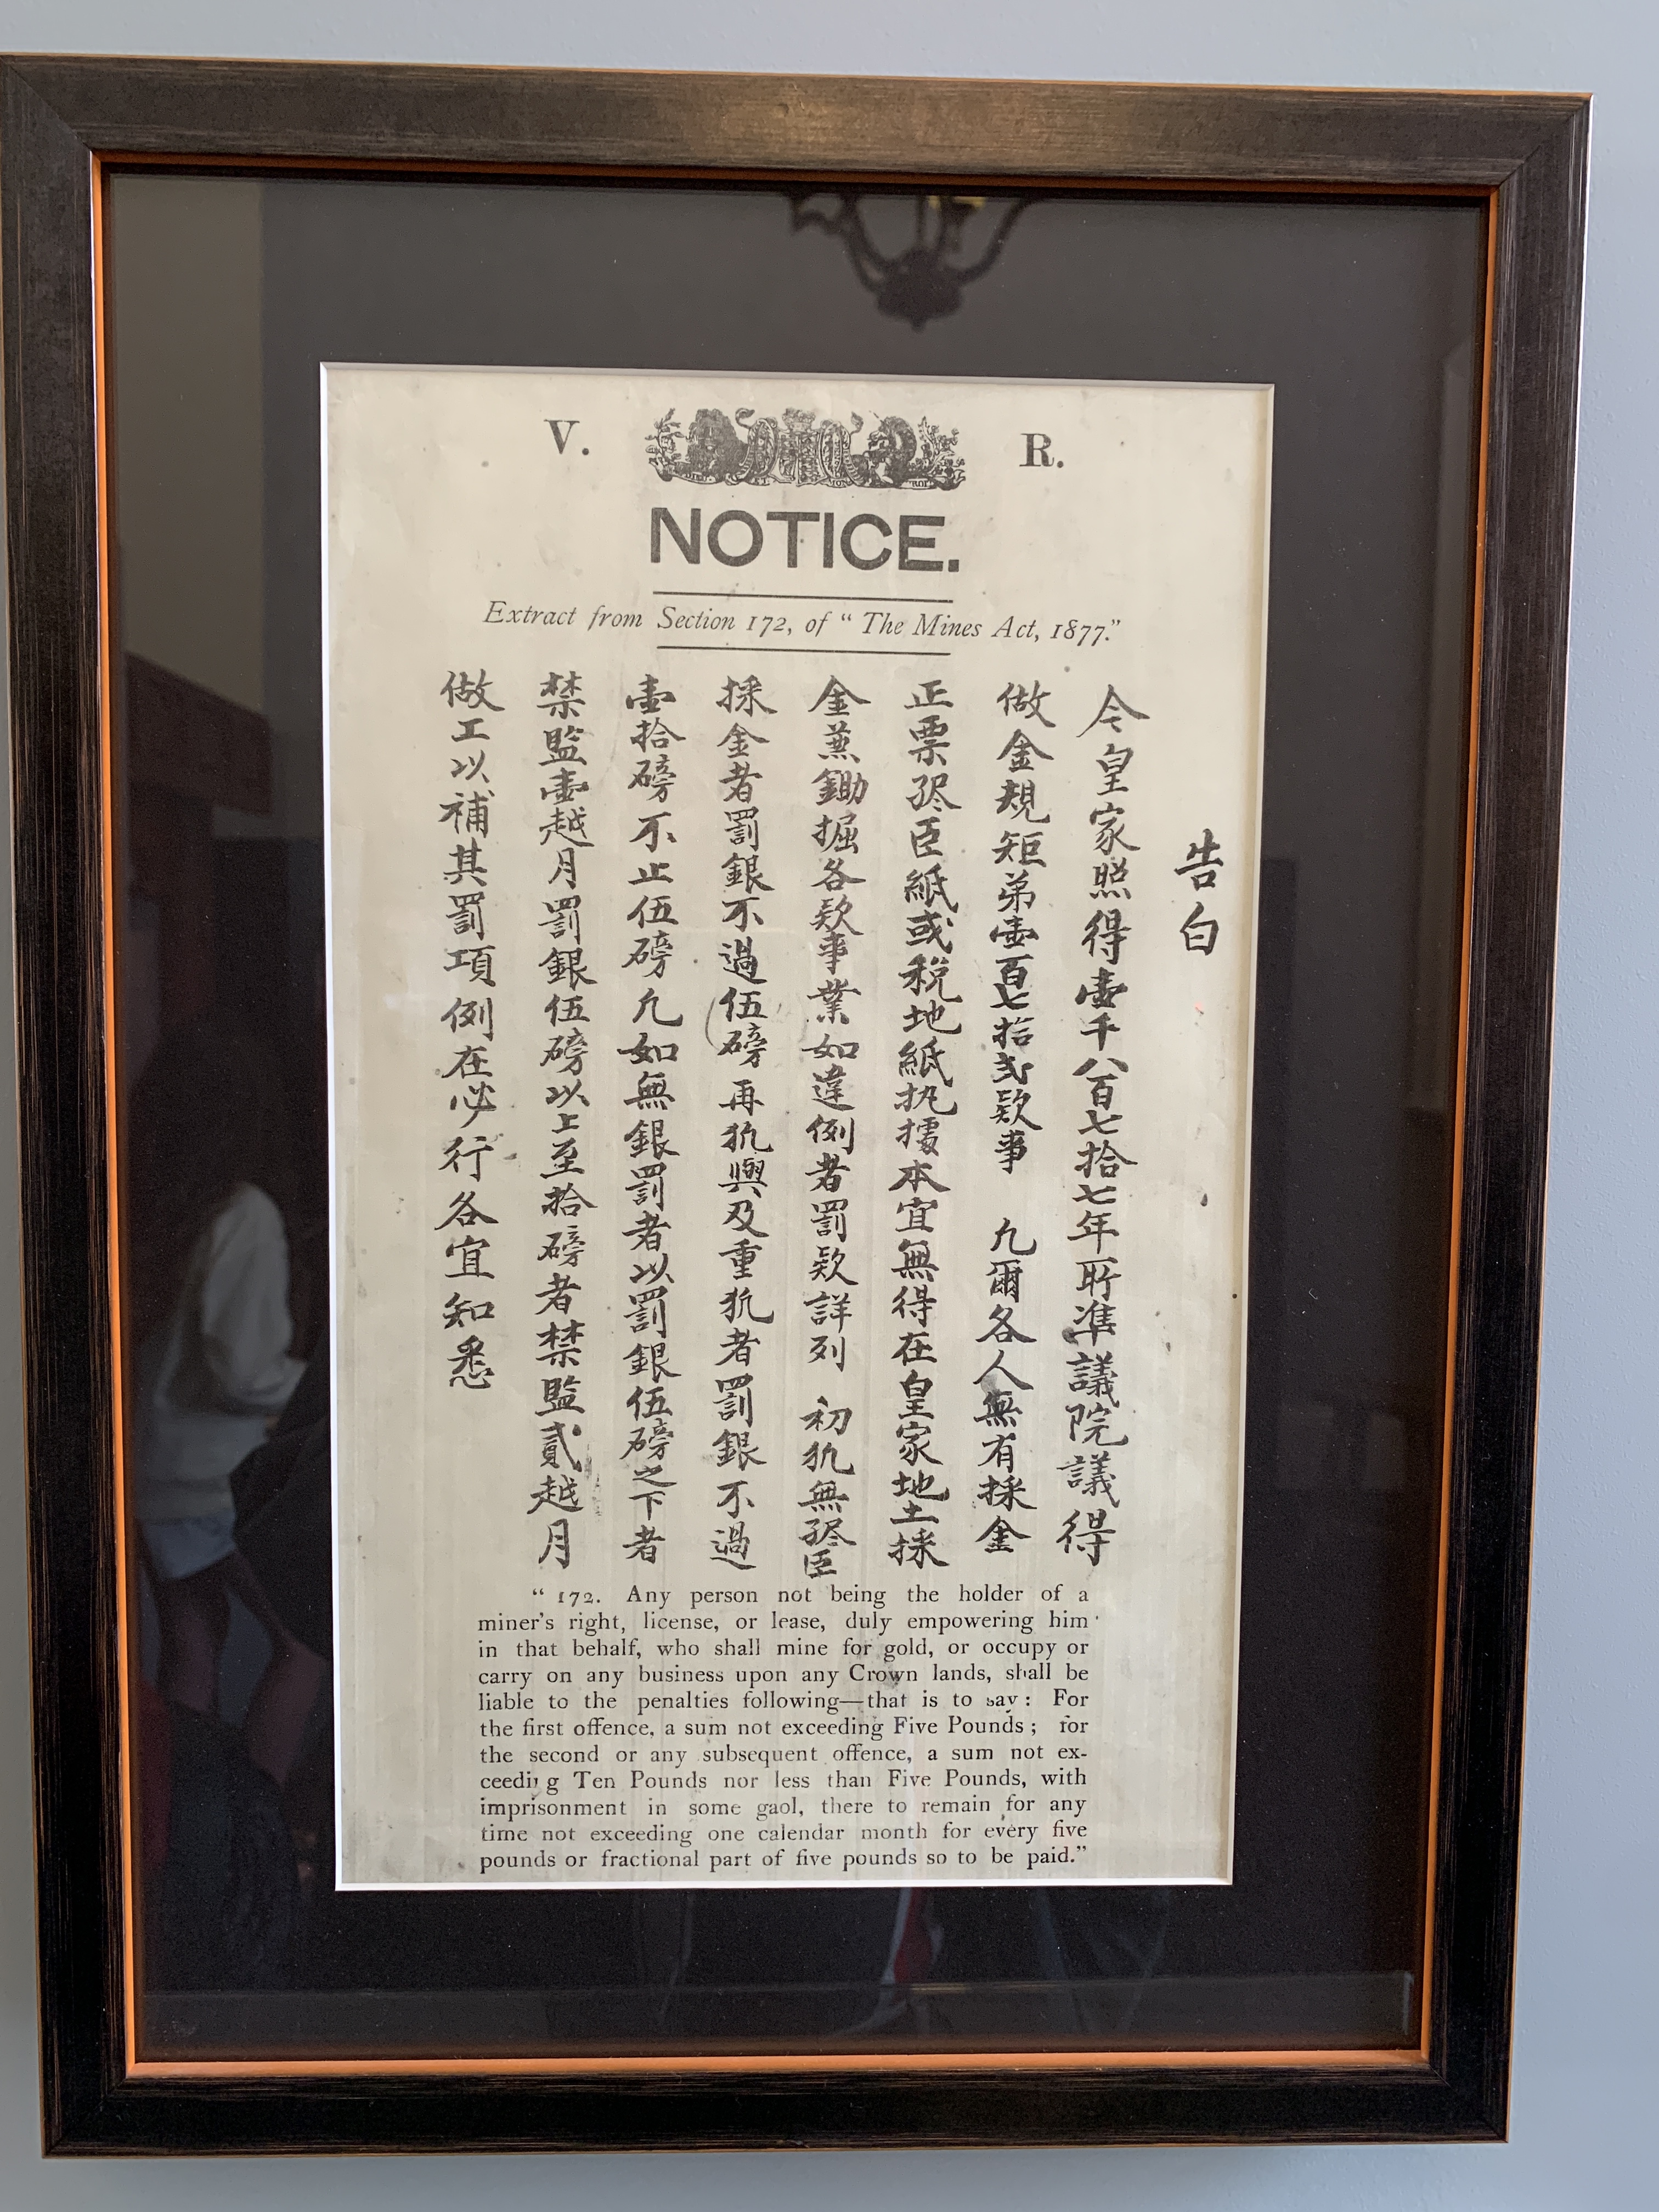 V. R.
NOTICE.
Extract from Section 172, of “ The Mines Act, 1877.”
告白
今皇家照得壷千八百七拾七年所準議院議得
做金規矩弟壷百七拾弍欵事 凢爾各人無有採金
正票孻臣紙或税地紙执㩴本宜無得在皇家地土採
金兼鋤掘各欵事業如違例者罰欵詳列 初犯無孻臣
採金者罰銀不過伍磅再犯與及重犯者罰銀不過
壷拾磅不止伍磅凢如無銀罰者以罰銀伍磅之下者
禁監壷越月罰銀伍磅以上至拾磅者禁監貳越月
做工以補其罰項例在必行各宜知悉
“ 172. Any person not being the holder of a
miner's right, license, or lease, duly empowering him
in that behalf, who shall mine for gold, or occupy or
carry on any business upon any Crown lands, shall be
liable to the penalties following—that is to say: For
the first offence, a sum not exceeding Five Pounds ; for
the second or any subsequent offence, a sum not ex-
ceeding Ten Pounds nor less than Five Pounds, with
imprisonment in some gaol, there to remain for any
time not exceeding one calendar month for every five
pounds or fractional part of five pounds so to be paid.”